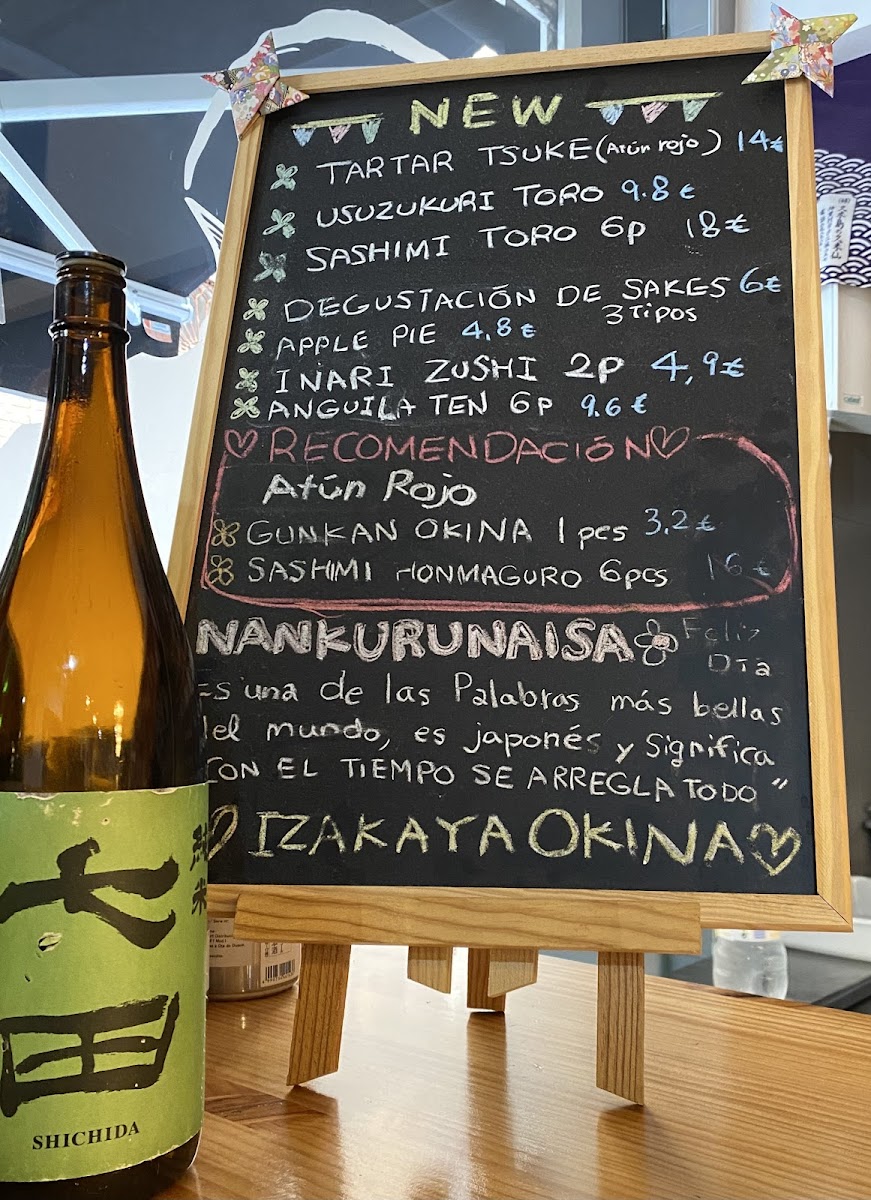 NEW
TARTAR TSUKE (Atún rojo) 14€
USUZUKURI TORO 9.8€
SASHIMI TORO 6p 18€
DEGUSTACIÓN DE SAKES 6€
3 TiPOS
APPLE PIE 4,8€
INARI ZUSHI 2p 4,9€
ANGUILA TEN 6p 9.6€
RECOMENDACIÓN
Atún Rojo
GUNKAN OKINA 1 pcs 3,2€
SASHIMI HONMAGURO 6pcs 16€
NANKURUNAISA Feliz
Día
Es una de las Palabras más bellas
del mundo, es japonés y significa
CON EL TIEMPO SE ARREGLA TODO"
IZAKAYA OKINA
純米
七田
SHICHIDA